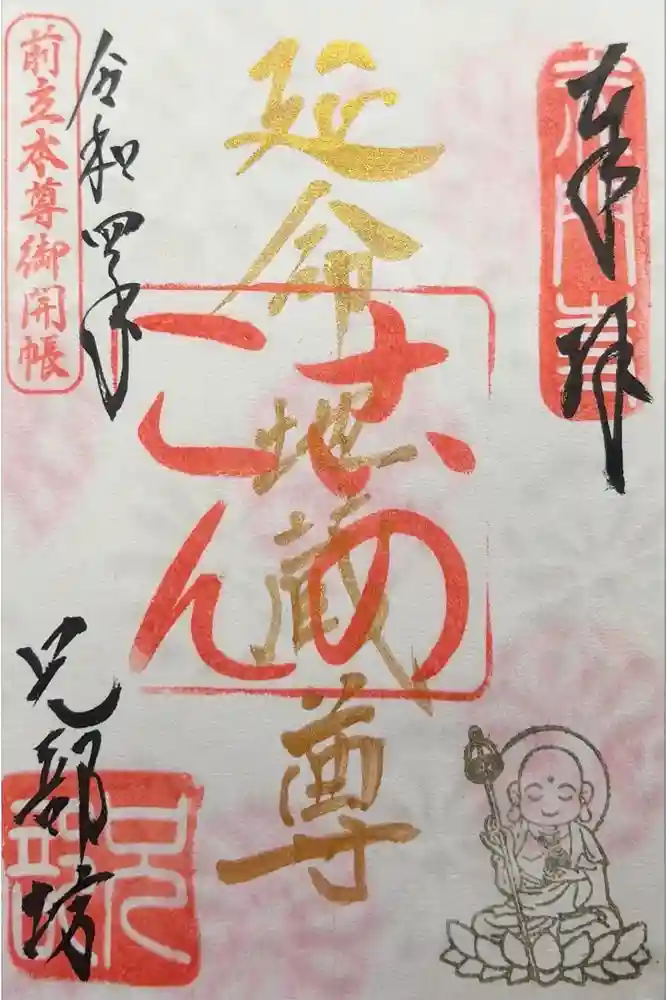 奉拝
延命地蔵尊
令和四年
前立本尊御開帳
兄部坊
兄部